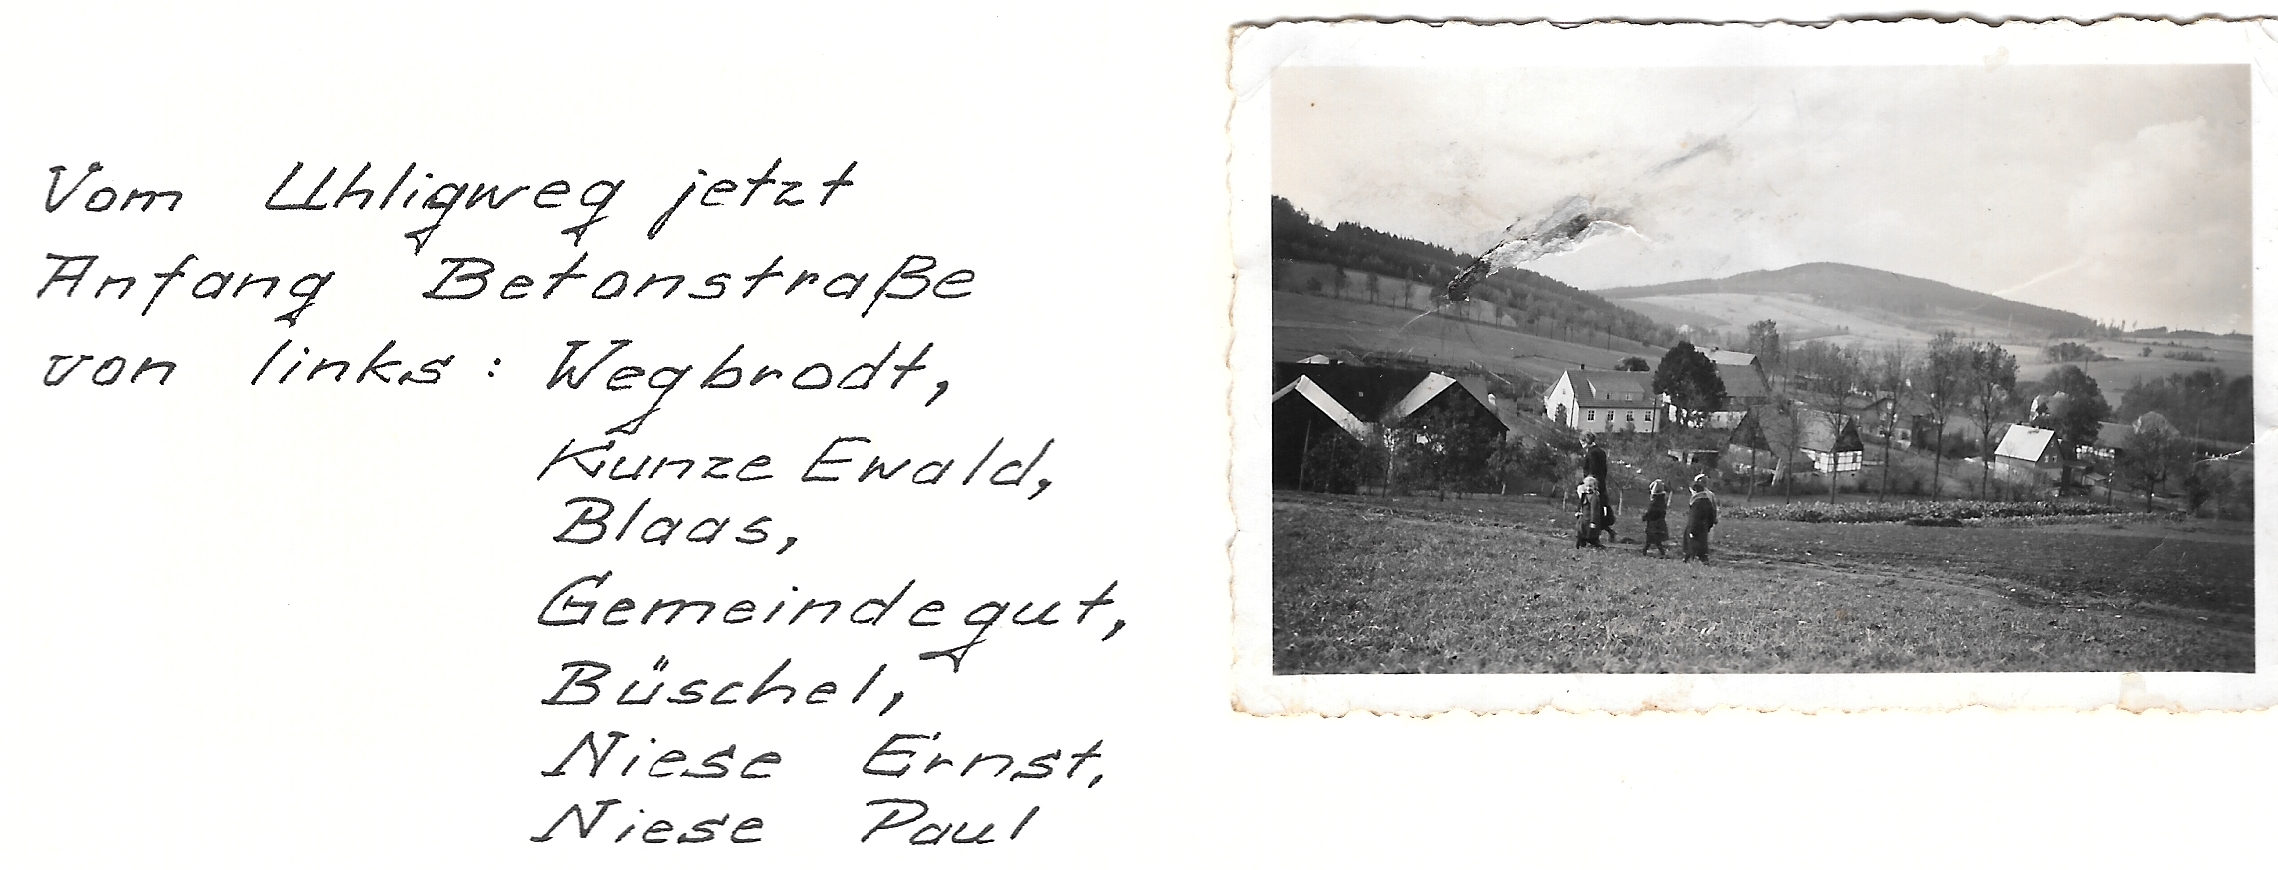 Vom Uhligweg jetzt
Anfang Betonstraße
von links: Wegbrodt,
Kunze Ewald,
Blaas,
Gemeindegut,
Büschel,
Niese Ernst,
Niese Paul